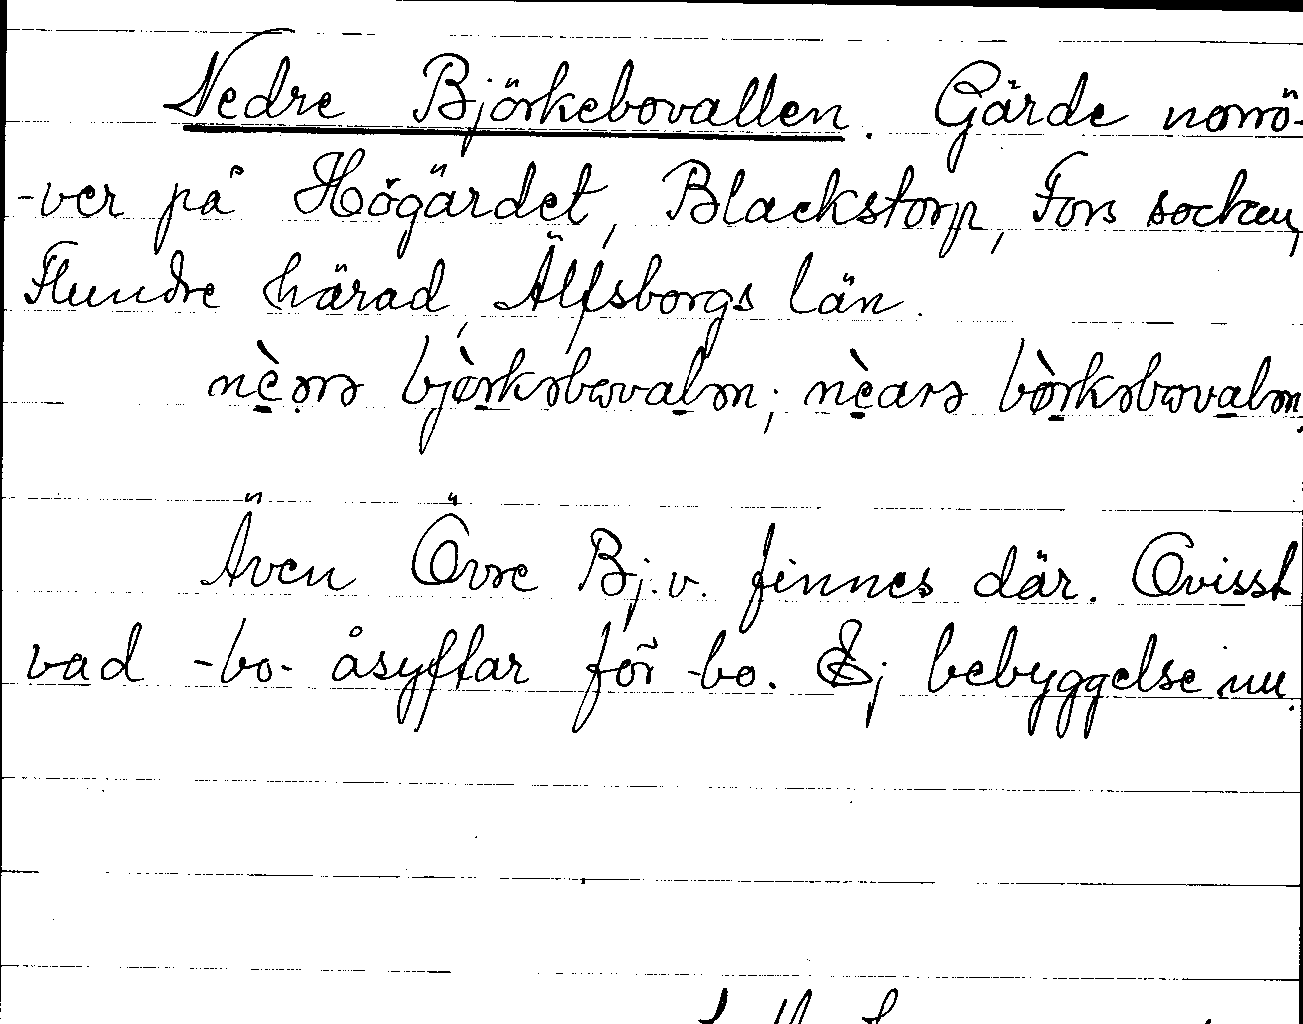 Nedre Björkebovallen. Gärde norrö-
-ver på Högärdet, Blackstorp, Fors socken,
Flundre härad, Älfsborgs län.
nèərə bjòrkəbovalən; nèarə bòrkəbovalən.
Även Övre Bj.v. finnes där. Ovisst
vad -bo- åsyftar för -bo. Ej bebyggelse nu.